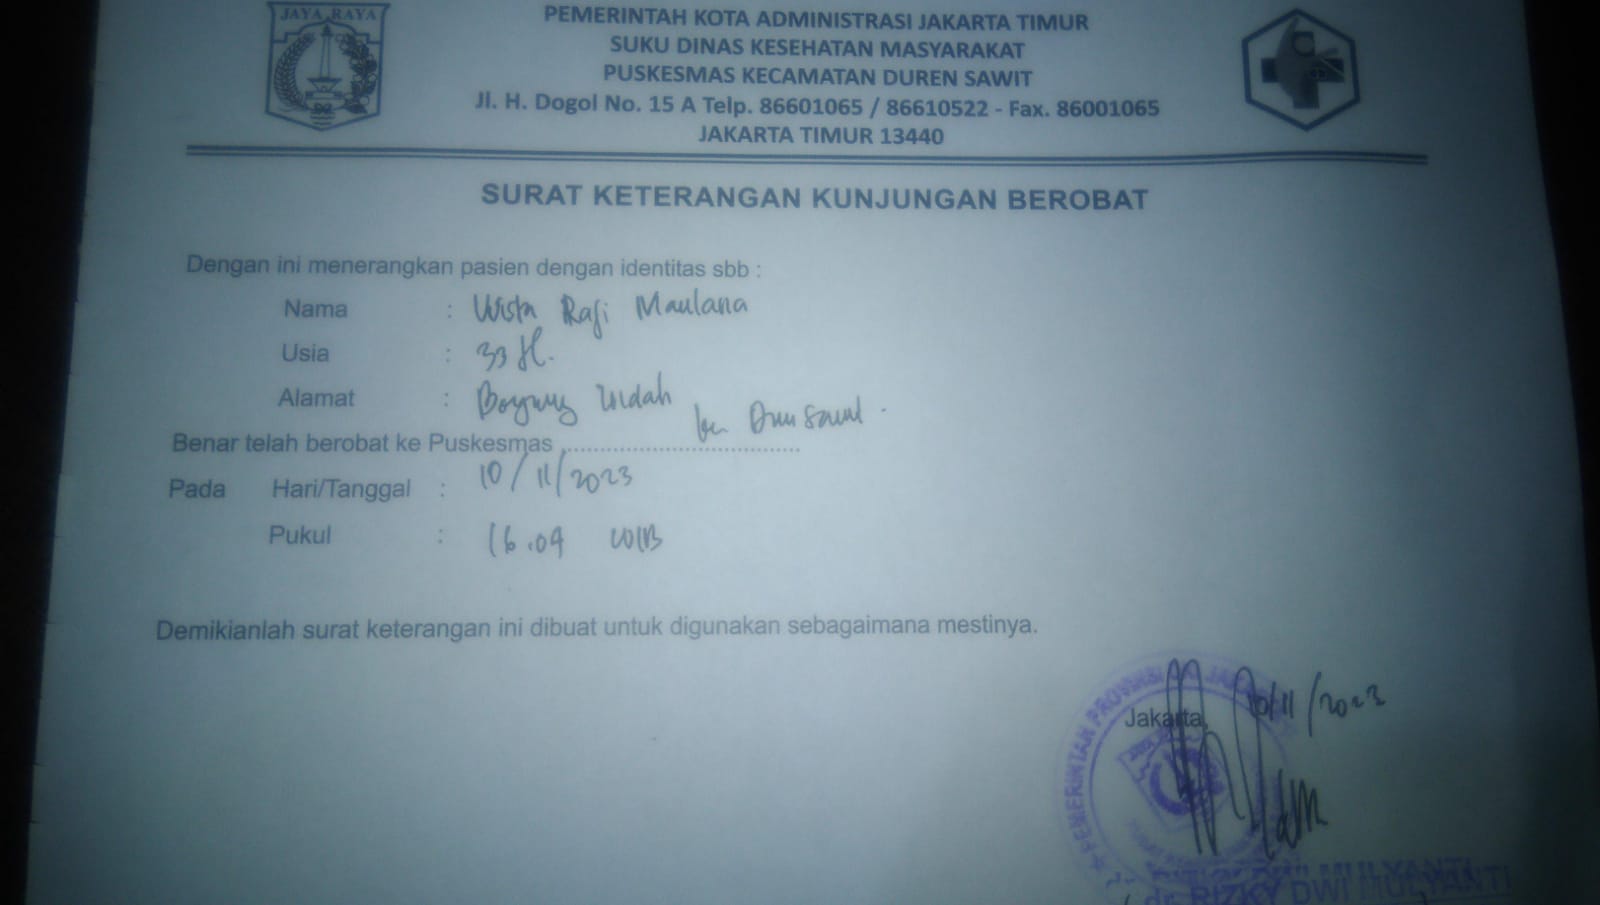 JAYA RAYA
PEMERINTAH KOTA ADMINISTRASI JAKARTA TIMUR
SUKU DINAS KESEHATAN MASYARAKAT
PUSKESMAS KECAMATAN DUREN SAWIT
Jl. H. Dogol No. 15 A Telp. 86601065 / 86610522 - Fax. 86001065
JAKARTA TIMUR 13440
SURAT KETERANGAN KUNJUNGAN BEROBAT
Dengan ini menerangkan pasien dengan identitas sbb :
Nama : Wista Rafi Maulana
Usia : 33
Alamat : Indah
Benar telah berobat ke Puskesmas ..................................
Pada Hari/Tanggal : 10/11/2023
Pukul : 16.09 WIB
Demikianlah surat keterangan ini dibuat untuk digunakan sebagaimana mestinya.
PEMERINTAH PROVINSI DKI JAKARTA
Jakarta, 10/11/2023
dr. RIZKY DWI MULYANTI